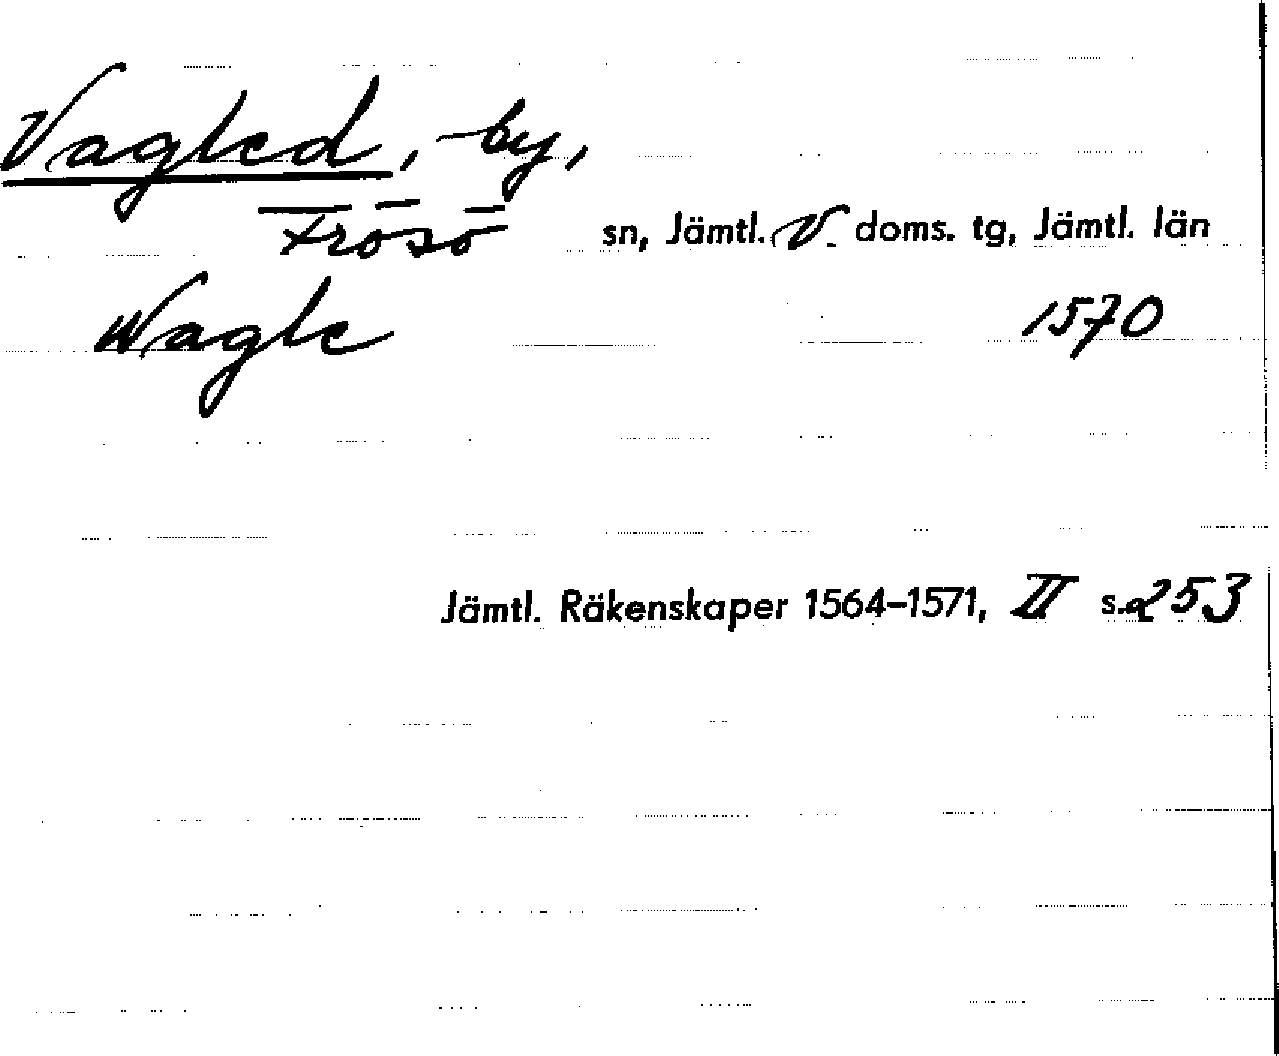 Vagled, by,
Frösö sn, Jämtl. V. doms. tg, Jämtl. län
Wagle 1570
Jämtl. Räkenskaper 1564-1571, II s. 253